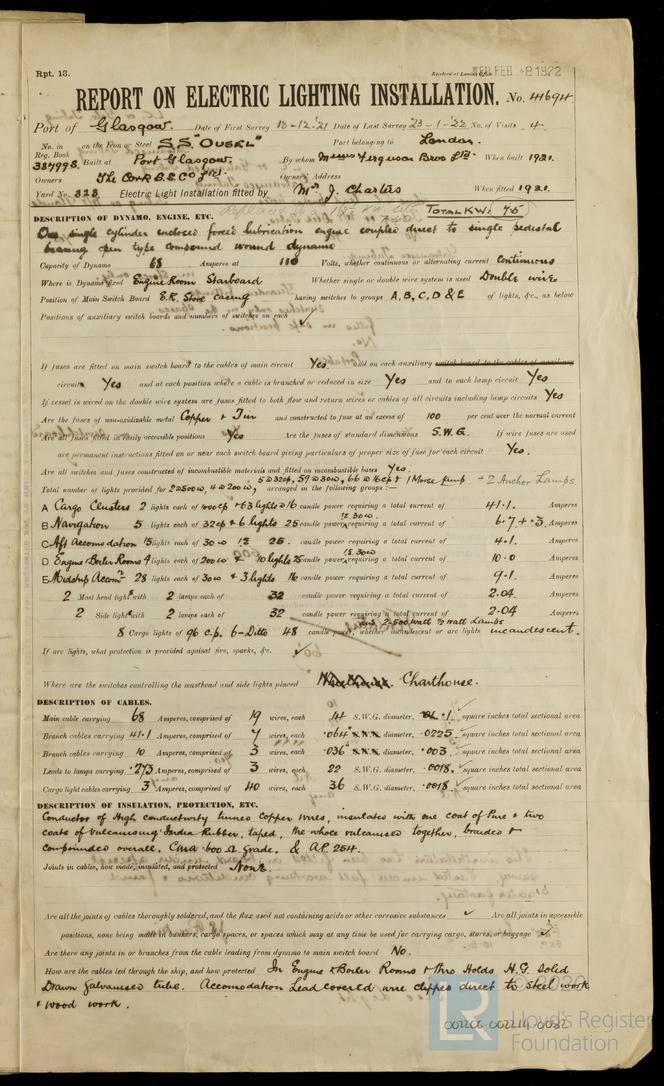 Rpt. 13.
Received at London Office WED. FEB. 8 1922
REPORT ON ELECTRIC LIGHTING INSTALLATION. No. 41694
Port of Glasgow. Date of First Survey 13-12-'21 Date of Last Survey 23-1-'22 No. of Visits 4.
No. in Reg. Book 38799S. on the Iron or Steel S.S. "OUSEL" Port belonging to London.
Built at Port Glasgow. By whom Messrs Ferguson Bros Ltd. When built 1921.
Owners The Cork S.S. Co Ltd. Owners' Address
Yard No. 323 Electric Light Installation fitted by Mr J. Charters When fitted 1921.
TOTAL KW: 7.5
DESCRIPTION OF DYNAMO, ENGINE, ETC.
One single cylinder enclosed forced lubrication engine coupled direct to single pedestal
bearing open type compound wound dynamo
Capacity of Dynamo 68 Amperes at 110 Volts, whether continuous or alternating current Continuous
Where is Dynamo fixed Engine Room Starboard Whether single or double wire system is used Double wire
Position of Main Switch Board E.R. Store casing having switches to groups A, B, C, D & E of lights, &c., as below
Positions of auxiliary switch boards and numbers of switches on each ✓
If fuses are fitted on main switch board to the cables of main circuit Yes and on each auxiliary switch board to the cables of auxiliary
circuit Yes and at each position where a cable is branched or reduced in size Yes and to each lamp circuit Yes
If vessel is wired on the double wire system are fuses fitted to both flow and return wires or cables of all circuits including lamp circuits Yes
Are the fuses of non-oxidizable metal Copper & Tin and constructed to fuse at an excess of 100 per cent over the normal current
Are all fuses fitted in easily accessible positions Yes Are the fuses of standard dimensions S.W.G. If wire fuses are used
are permanent instructions fitted on or near each switch board giving particulars of proper size of fuse for each circuit Yes.
Are all switches and fuses constructed of incombustible materials and fitted on incombustible bases Yes.
Total number of lights provided for 2 @ 500w, 4 @ 200w, 5 @ 32cp, 59 @ 30w, 66 @ 16cp & 1 Morse Lamp + 2 Anchor Lamps
arranged in the following groups :—
A Cargo Clusters 2 lights each of 1000cp & 63 lights @ 16 candle power requiring a total current of 41.1. Amperes
B Navigation 5 lights each of 32cp & 6 lights 25 candle power requiring a total current of 6.7 + .3 Amperes
C Aft Accomodation 15 lights each of 30w 1 @ 25. candle power requiring a total current of 4.1 Amperes
D Engine & Boiler Rooms 4 lights each of 200w & 10 lights 25 candle power requiring a total current of 10.0 Amperes
E Midship Accomn 28 lights each of 30w & 3 lights 16 candle power requiring a total current of 9.1 Amperes
2 Mast head light with 2 lamps each of 32 candle power requiring a total current of 2.04 Amperes
2 Side light with 2 lamps each of 32 candle power requiring a total current of 2.04 Amperes
and 2-500 watt ½ watt Lamps
8 Cargo lights of 96 c.p. 6-Ditto 48 candle power, whether incandescent or arc lights incandescent.
If arc lights, what protection is provided against fire, sparks, &c. ✓
Where are the switches controlling the masthead and side lights placed Charthouse.
DESCRIPTION OF CABLES.
Main cable carrying 68 Amperes, comprised of 19 wires, each 14 S.W.G. diameter, .1 square inches total sectional area
Branch cables carrying 41.1 Amperes, comprised of 7 wires, each .064" S.W.G. diameter, .0225 square inches total sectional area
Branch cables carrying 10 Amperes, comprised of 3 wires, each .036" S.W.G. diameter, .003 square inches total sectional area
Leads to lamps carrying .273 Amperes, comprised of 3 wires, each 22 S.W.G. diameter, .0018 square inches total sectional area
Cargo light cables carrying 3 Amperes, comprised of 40 wires, each 36 S.W.G. diameter, .0018 square inches total sectional area
DESCRIPTION OF INSULATION, PROTECTION, ETC.
Conductor of High conductivity tinned Copper wires, insulated with one coat of Pure & two
coats of Vulcanising India Rubber, taped, the whole vulcanised together, braided &
compounded overall. Cma 600 Ω Grade. & A.P. 254.
Joints in cables, how made, insulated, and protected None.
Are all the joints of cables thoroughly soldered, and the flux used not containing acids or other corrosive substances ✓ Are all joints in accessible
positions, none being made in bunkers, cargo spaces, or spaces which may at any time be used for carrying cargo, stores, or baggage ✓
Are there any joints in or branches from the cable leading from dynamo to main switch board No.
How are the cables led through the ship, and how protected In Engine & Boiler Rooms & thro Holds H.G. Solid
Drawn Galvanised tube. Accomodation Lead covered wire clipped direct to steel work
& wood work.
002206-002214-0032
LR
© 2020
Lloyd's Register
Foundation